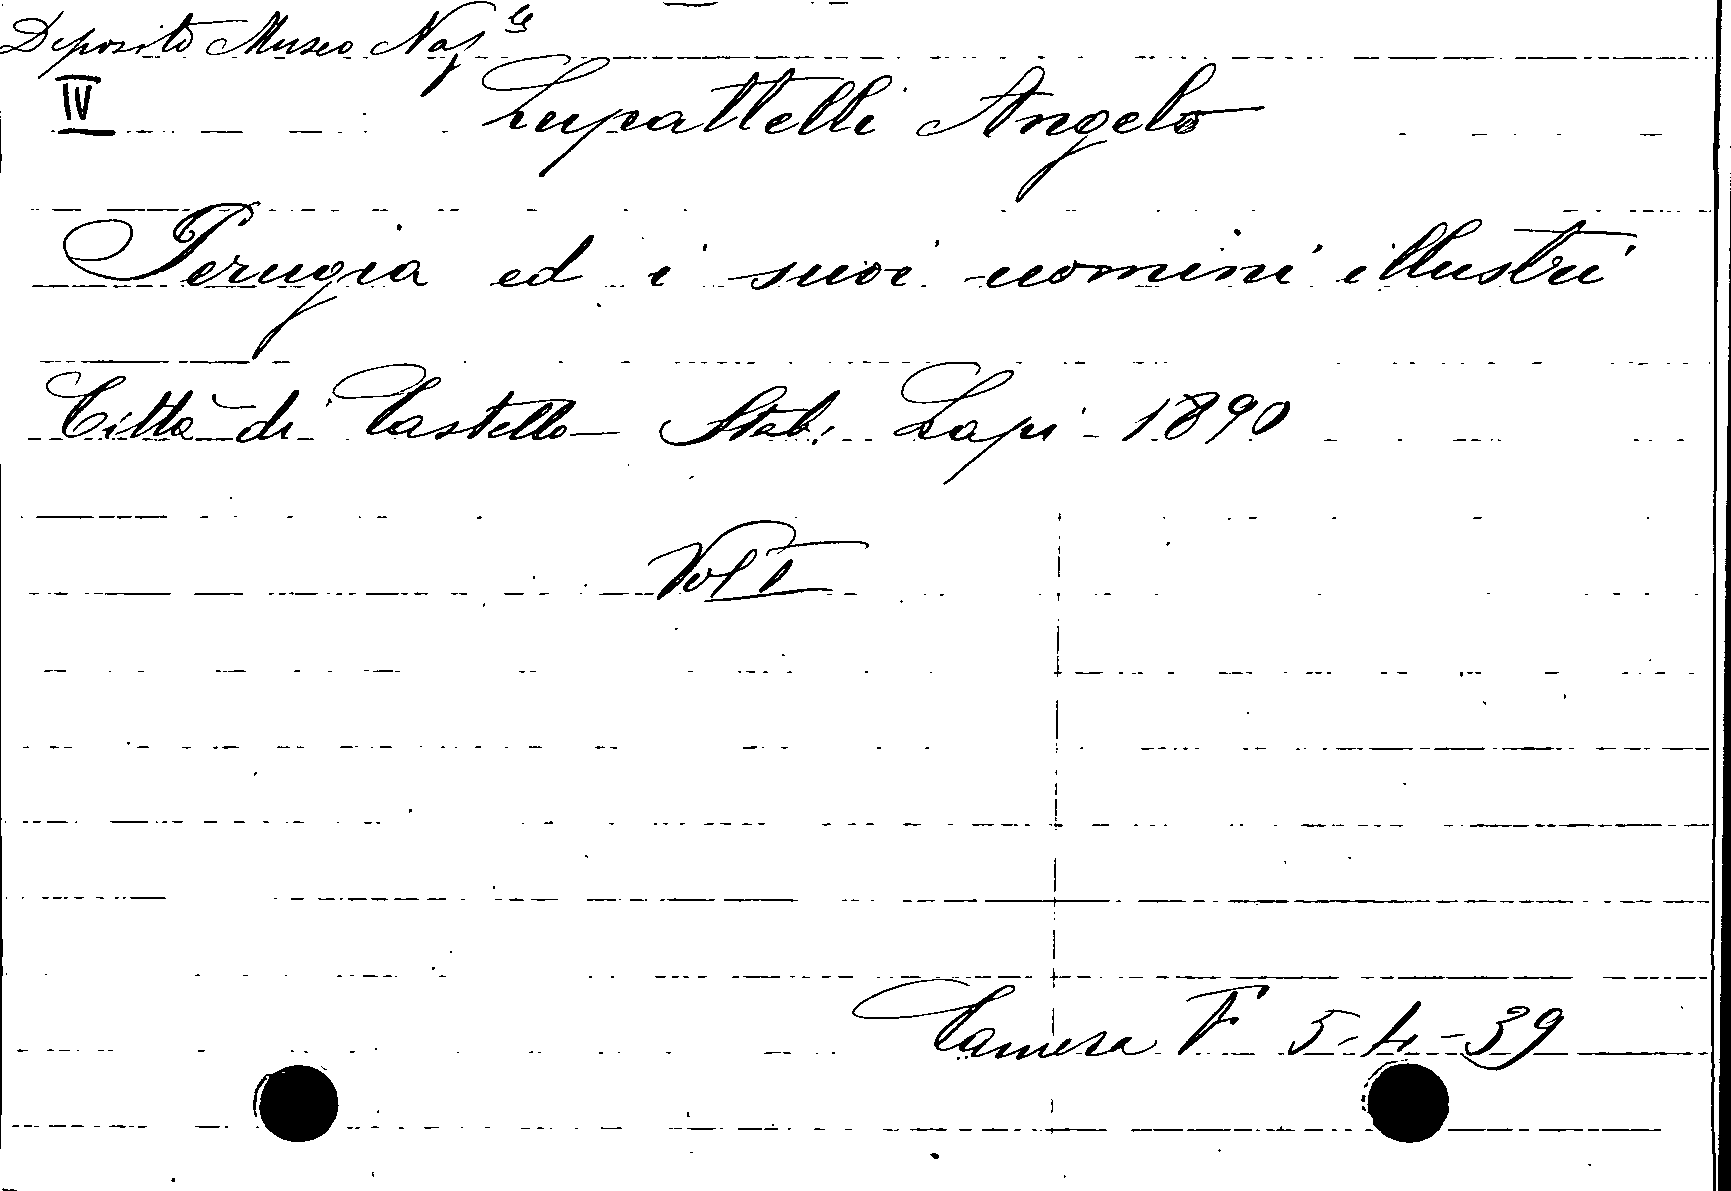 Deposito Museo Naz.le
IV
Lupattelli Angelo
Perugia ed i suoi uomini illustri
Città di Castello - Stab. Lapi - 1890
Vol I
Camera F 5-4-39